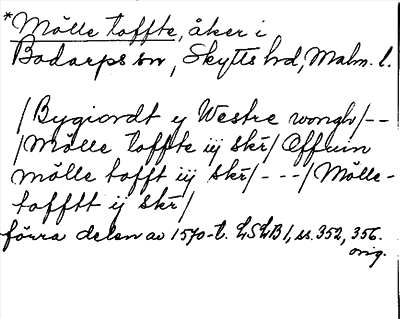 *Mölle toffte, åker i
Bodarps sn, Skytts hd, Malm. l.
/Bygiordt y Westre wongh/--
/Mölle toffte iij skr/ Offuin
mölle tofft iij skr/---/Mölle-
tofftt ij skr/
förra delen av 1570-t. LSLB 1, ss. 352, 356.
orig.